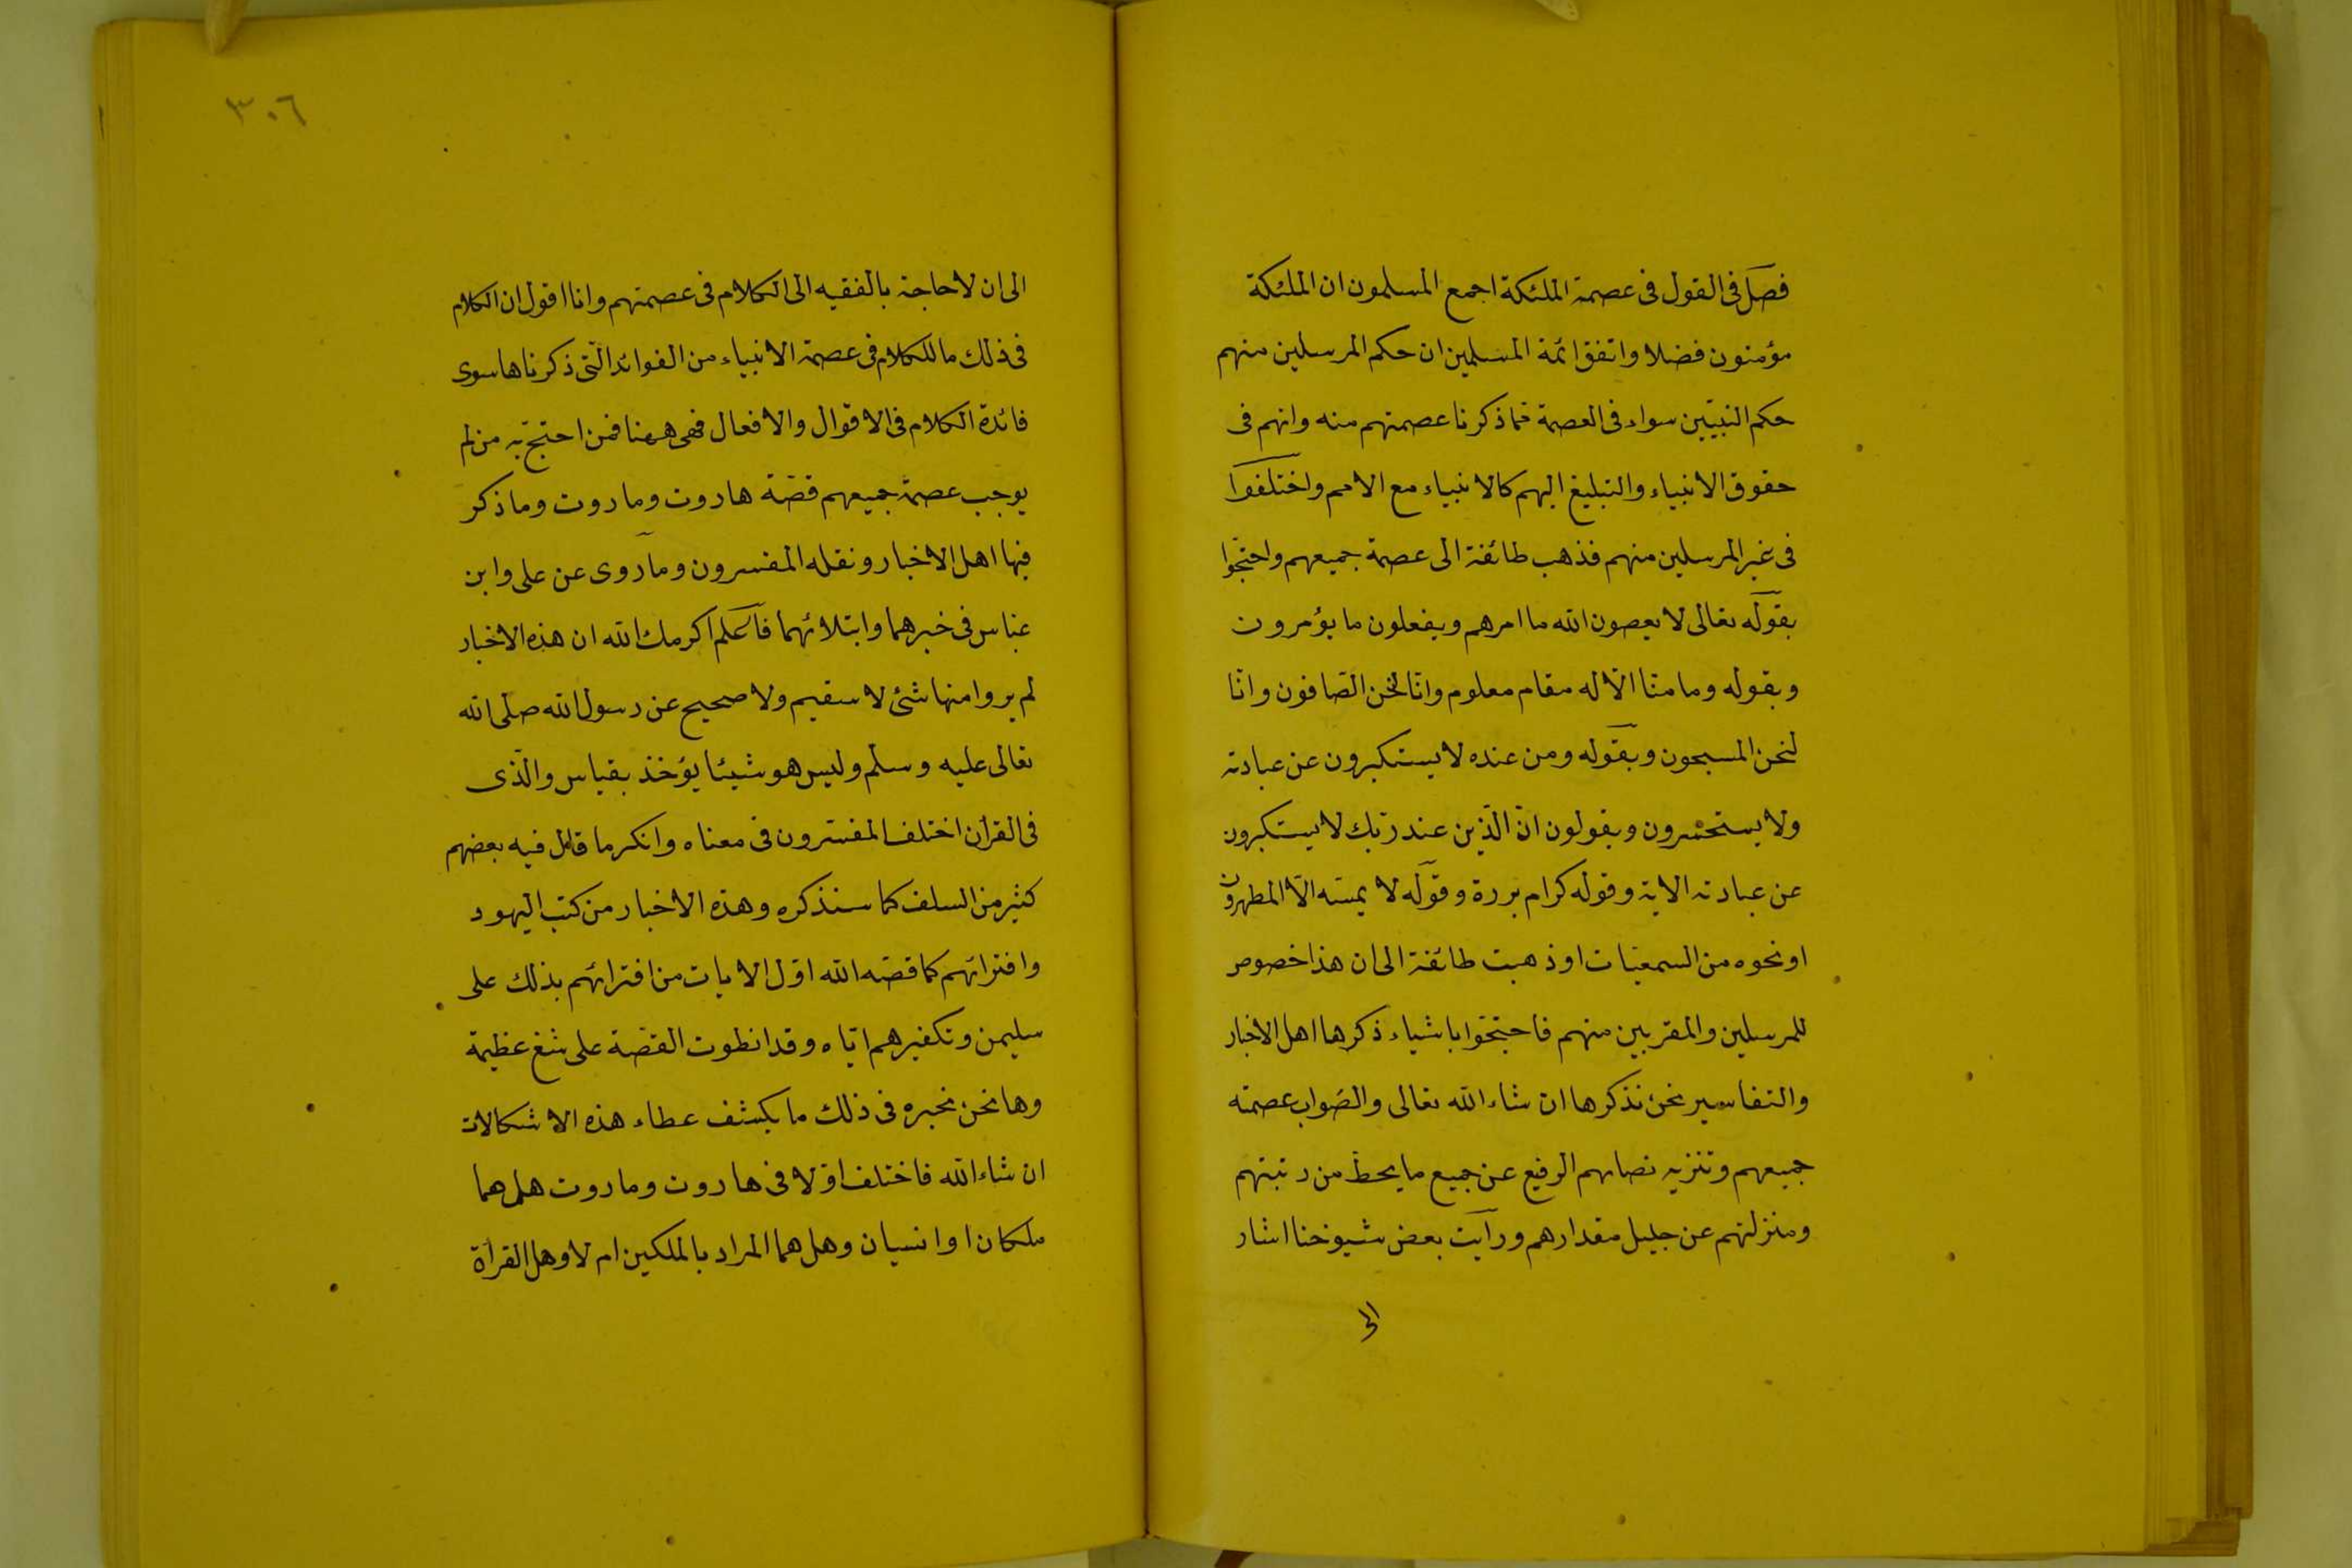 فصل فى القول فى عصمة الملئكة اجمع المسلمون ان الملئكة
مؤمنون فضلا واتفق ائمة المسلمين ان حكم المرسلين منهم
حكم النبيّين سواء فى العصمة مما ذكرنا عصمتهم منه وانهم فى
حقوق الانبياء والتبليغ اليهم كالانبياء مع الامم واختلفوا
فى غير المرسلين منهم فذهب طائفة الى عصمة جميعهم واحتجّوا
بقوله تعالى لا يعصون الله ما امرهم ويفعلون ما يؤمرون
وبقوله وما منّا الّا له مقام معلوم وانّا لنحن الصّافون وانّا
لنحن المسبحون وبقوله ومن عنده لا يستكبرون عن عبادته
ولا يستحسرون ويقولون انّ الّذين عند ربّك لا يستكبرون
عن عبادته الاية وقوله كرام بررة وقوله لا يمسّه الّا المطهرون
او نحوه من السمعيّات او ذهبت طائفة الى ان هذا خصوص
للمرسلين والمقربين منهم فاحتجّوا باشياء ذكرها اهل الاخبار
والتفاسير نحن نذكرها ان شاء الله تعالى والصّواب عصمة
جميعهم وتنزيه نصابهم الرفيع عن جميع ما يحطّ من رتبتهم
ومنزلتهم عن جليل مقدارهم ورأيت بعض شيوخنا اشار
الى
٣٠٦
الى ان لا حاجة بالفقيه الى الكلام فى عصمتهم وانا اقول ان الكلام
فى ذلك ما للكلام فى عصمة الانبياء من الفوائد الّتى ذكرناها سوى
فائدة الكلام فى الاقوال والافعال فهى ههنا فمن احتجّ به من لم
يوجب عصمة جميعهم قصّة هاروت وماروت وما ذكر
فيها اهل الاخبار ونقله المفسرون وما روى عن على وابن
عباس فى خبرهما وابتلائهما فاعلم اكرمك الله ان هذه الاخبار
لم يروا منها شئ لا سقيم ولا صحيح عن رسول الله صلى الله
تعالى عليه وسلم وليس هو شيئا يؤخذ بقياس والّذى
فى القرآن اختلف المفسّرون فى معناه وانكر ما قال فيه بعضهم
كثير من السلف كما سنذكره وهذه الاخبار من كتب اليهود
وافترائهم كما قصّه الله اوّل الايات من افترائهم بذلك على
سليمن وتكفيرهم ايّاه وقد انطوت القصّة على شنع عظيمة
وها نحن نحبره فى ذلك ما يكشف عطاء هذه الاشكالات
ان شاء الله فاختلف اوّلا فى هاروت وماروت هل هما
ملكان او انسيان وهل هما المراد بالملكين ام لا وهل القراءة